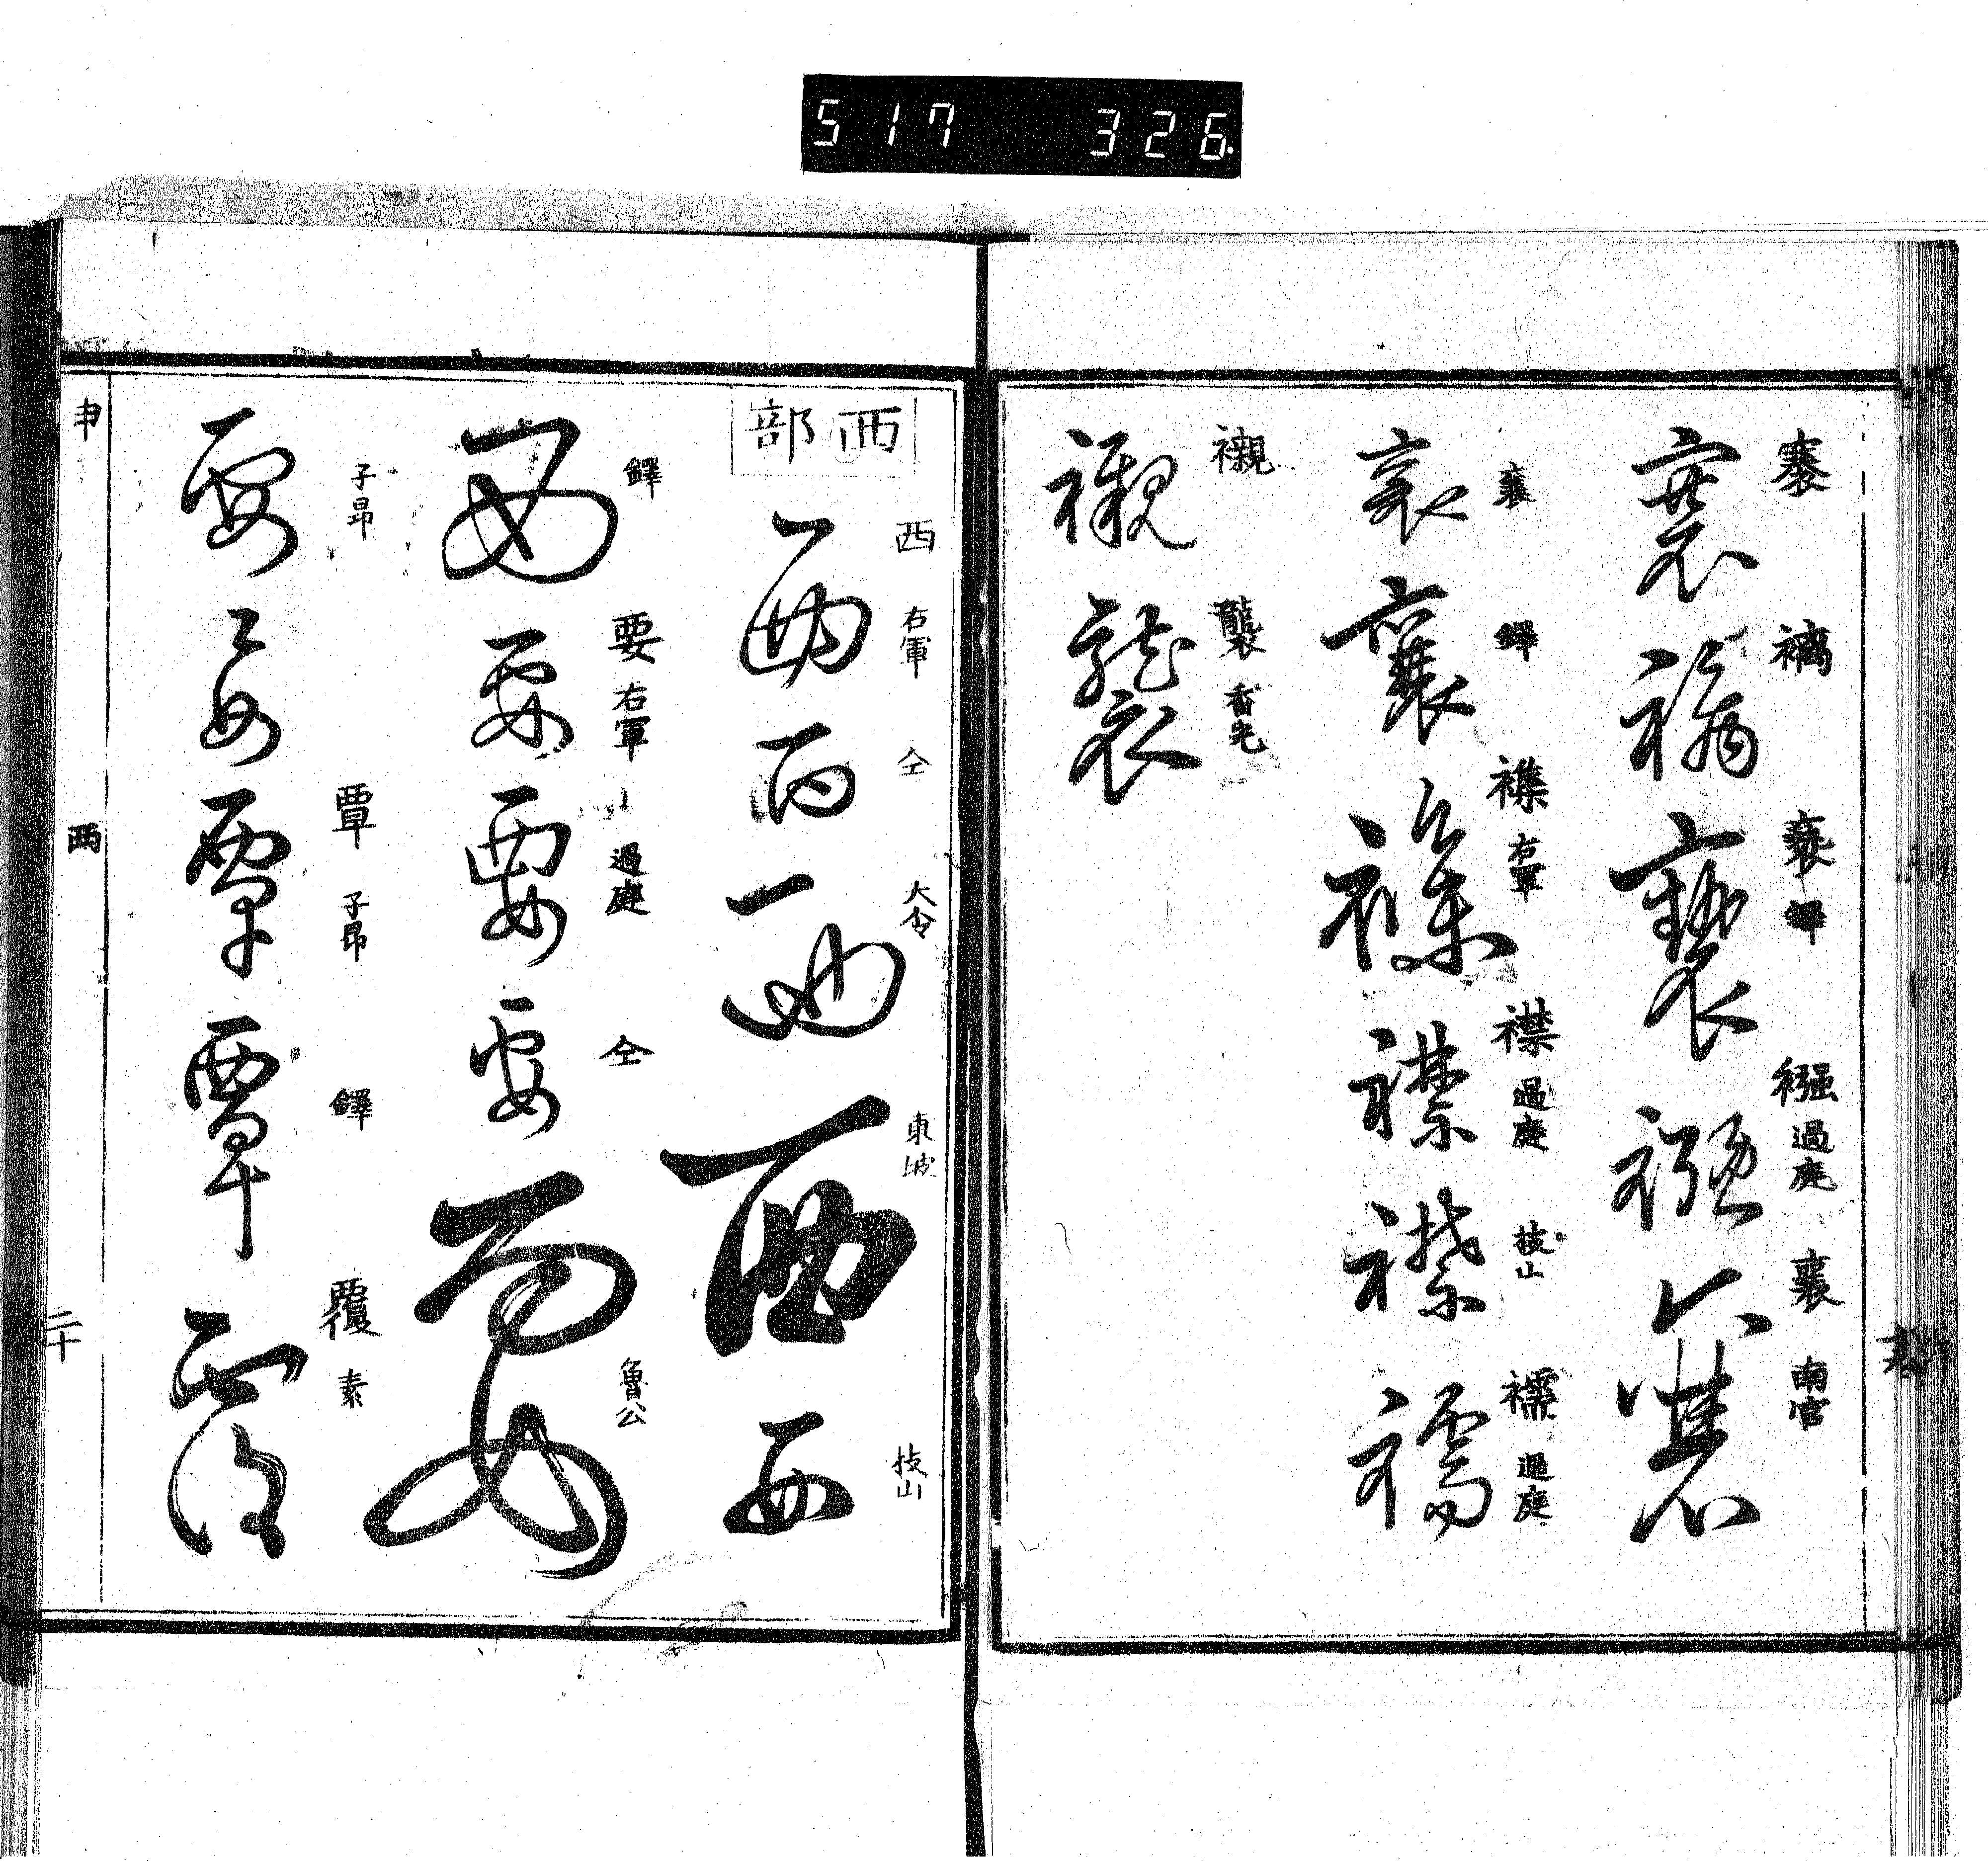 517 326
褰 褵 褻 鐸 襁 過庭 襄 南宮
襄 鐸 襍 右軍 襟 過庭 枝山 襦 過庭
襯 襲 香光
襾部
西 右軍 仝 大令 東坡 枝山
鐸 要 右軍 過庭 仝 魯公
子昂 覃 子昂 鐸 覆 素
申 襾 二十